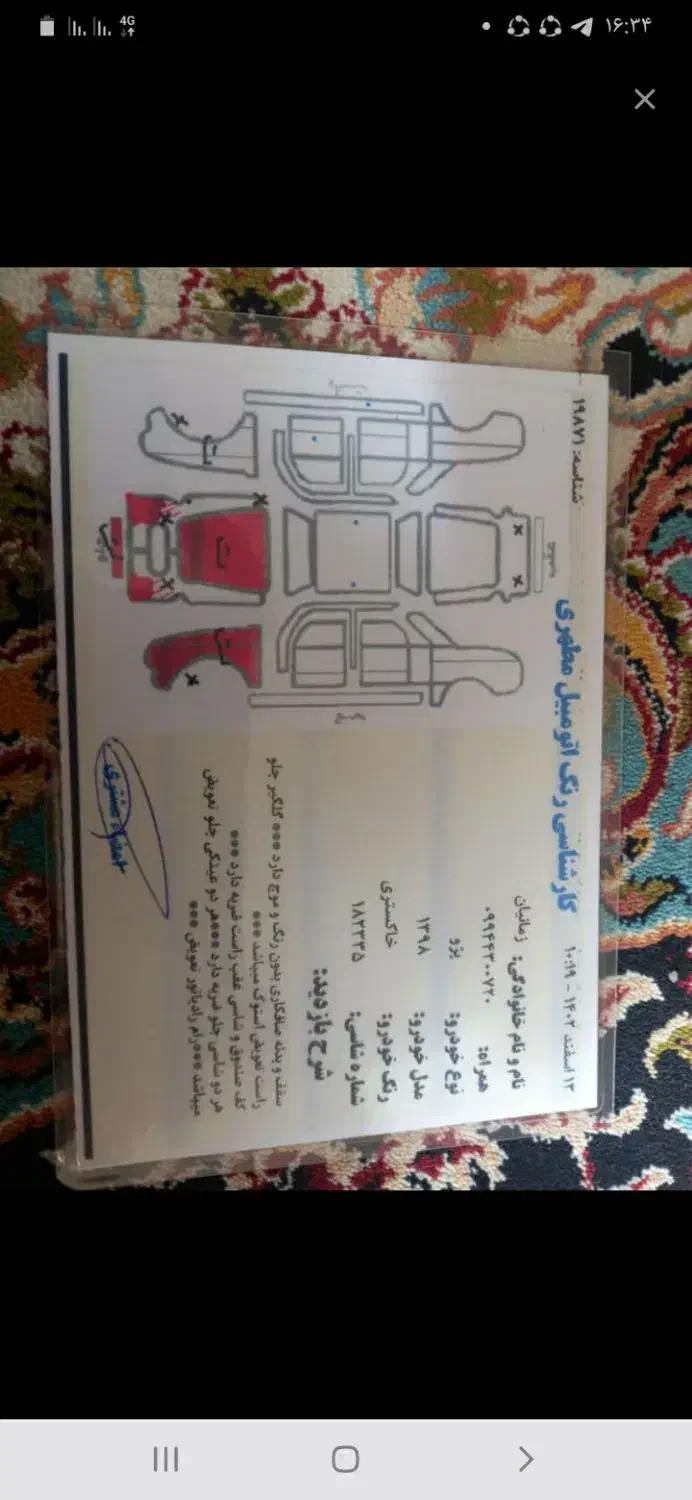 ۱۶:۳۴
4G
۱۳ اسفند ۱۴۰۲ - ۱۰:۱۹
کارشناسی رنگ اتومبیل مطهری
شناسه: ۱۹۸۷۱
نام و نام خانوادگی: زمانیان
همراه: ۰۹۹۴۴۳۰۰۷۲۰
نوع خودرو: پژو
مدل خودرو: ۱۳۹۸
رنگ خودرو: خاکستری
شماره شاسی: ۱۸۲۳۳۵
شرح بازدید:
سقف و بدنه صافکاری بدون رنگ و موج دارد *** گلگیر جلو
راست تعویض استوک میباشد ***
کف صندوق و شاسی عقب راست ضربه دارد ***
هر دو شاسی جلو ضربه دارد ***هر دو عینکی جلو تعویض
میباشد ***رام رادیاتور تعویض ***
ت
ت
ت
ت
امضاء مشتری